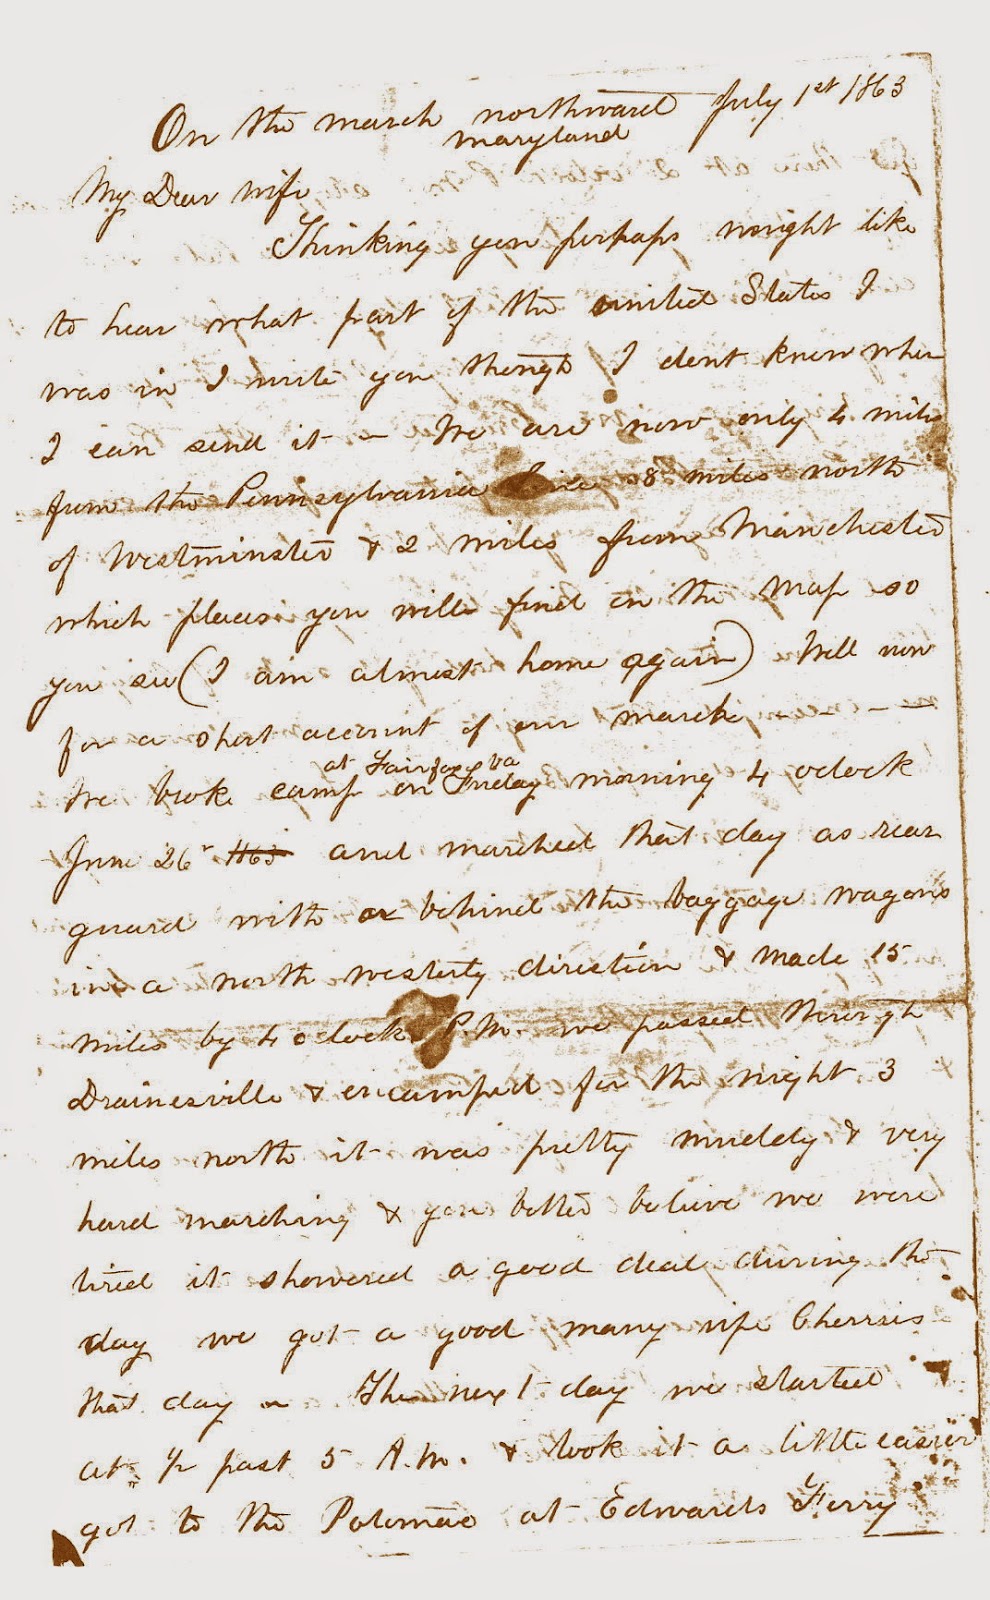 On the march northward July 1st 1863
maryland
My Dear wife
Thinking you perhaps might like
to hear what part of the united States I
was in I write you though I dont know when
I can send it – We are now only 4 miles
from the Pennsylvania line 8 miles north
of Westminster & 2 miles from Manchester
which places you will find on the Map so
you see (I am almost home again) Well now
for a short account of our march
at Fairfax Va
We broke camp on Friday morning 4 oclock
June 26" 1163 and marched that day as rear
guard with or behind the baggage wagons
in a north westerly direction & made 15
miles by 4 oclock P.M. we passed through
Drainesville & encamped for the night 3
miles north it was pretty muddy & very
hard marching & you better believe we were
tired it showered a good deal during the
day we got a good many ripe Cherries
that day – The next day we started
at ½ past 5 A.M. & took it a little easier
got to the Potomac at Edwards Ferry